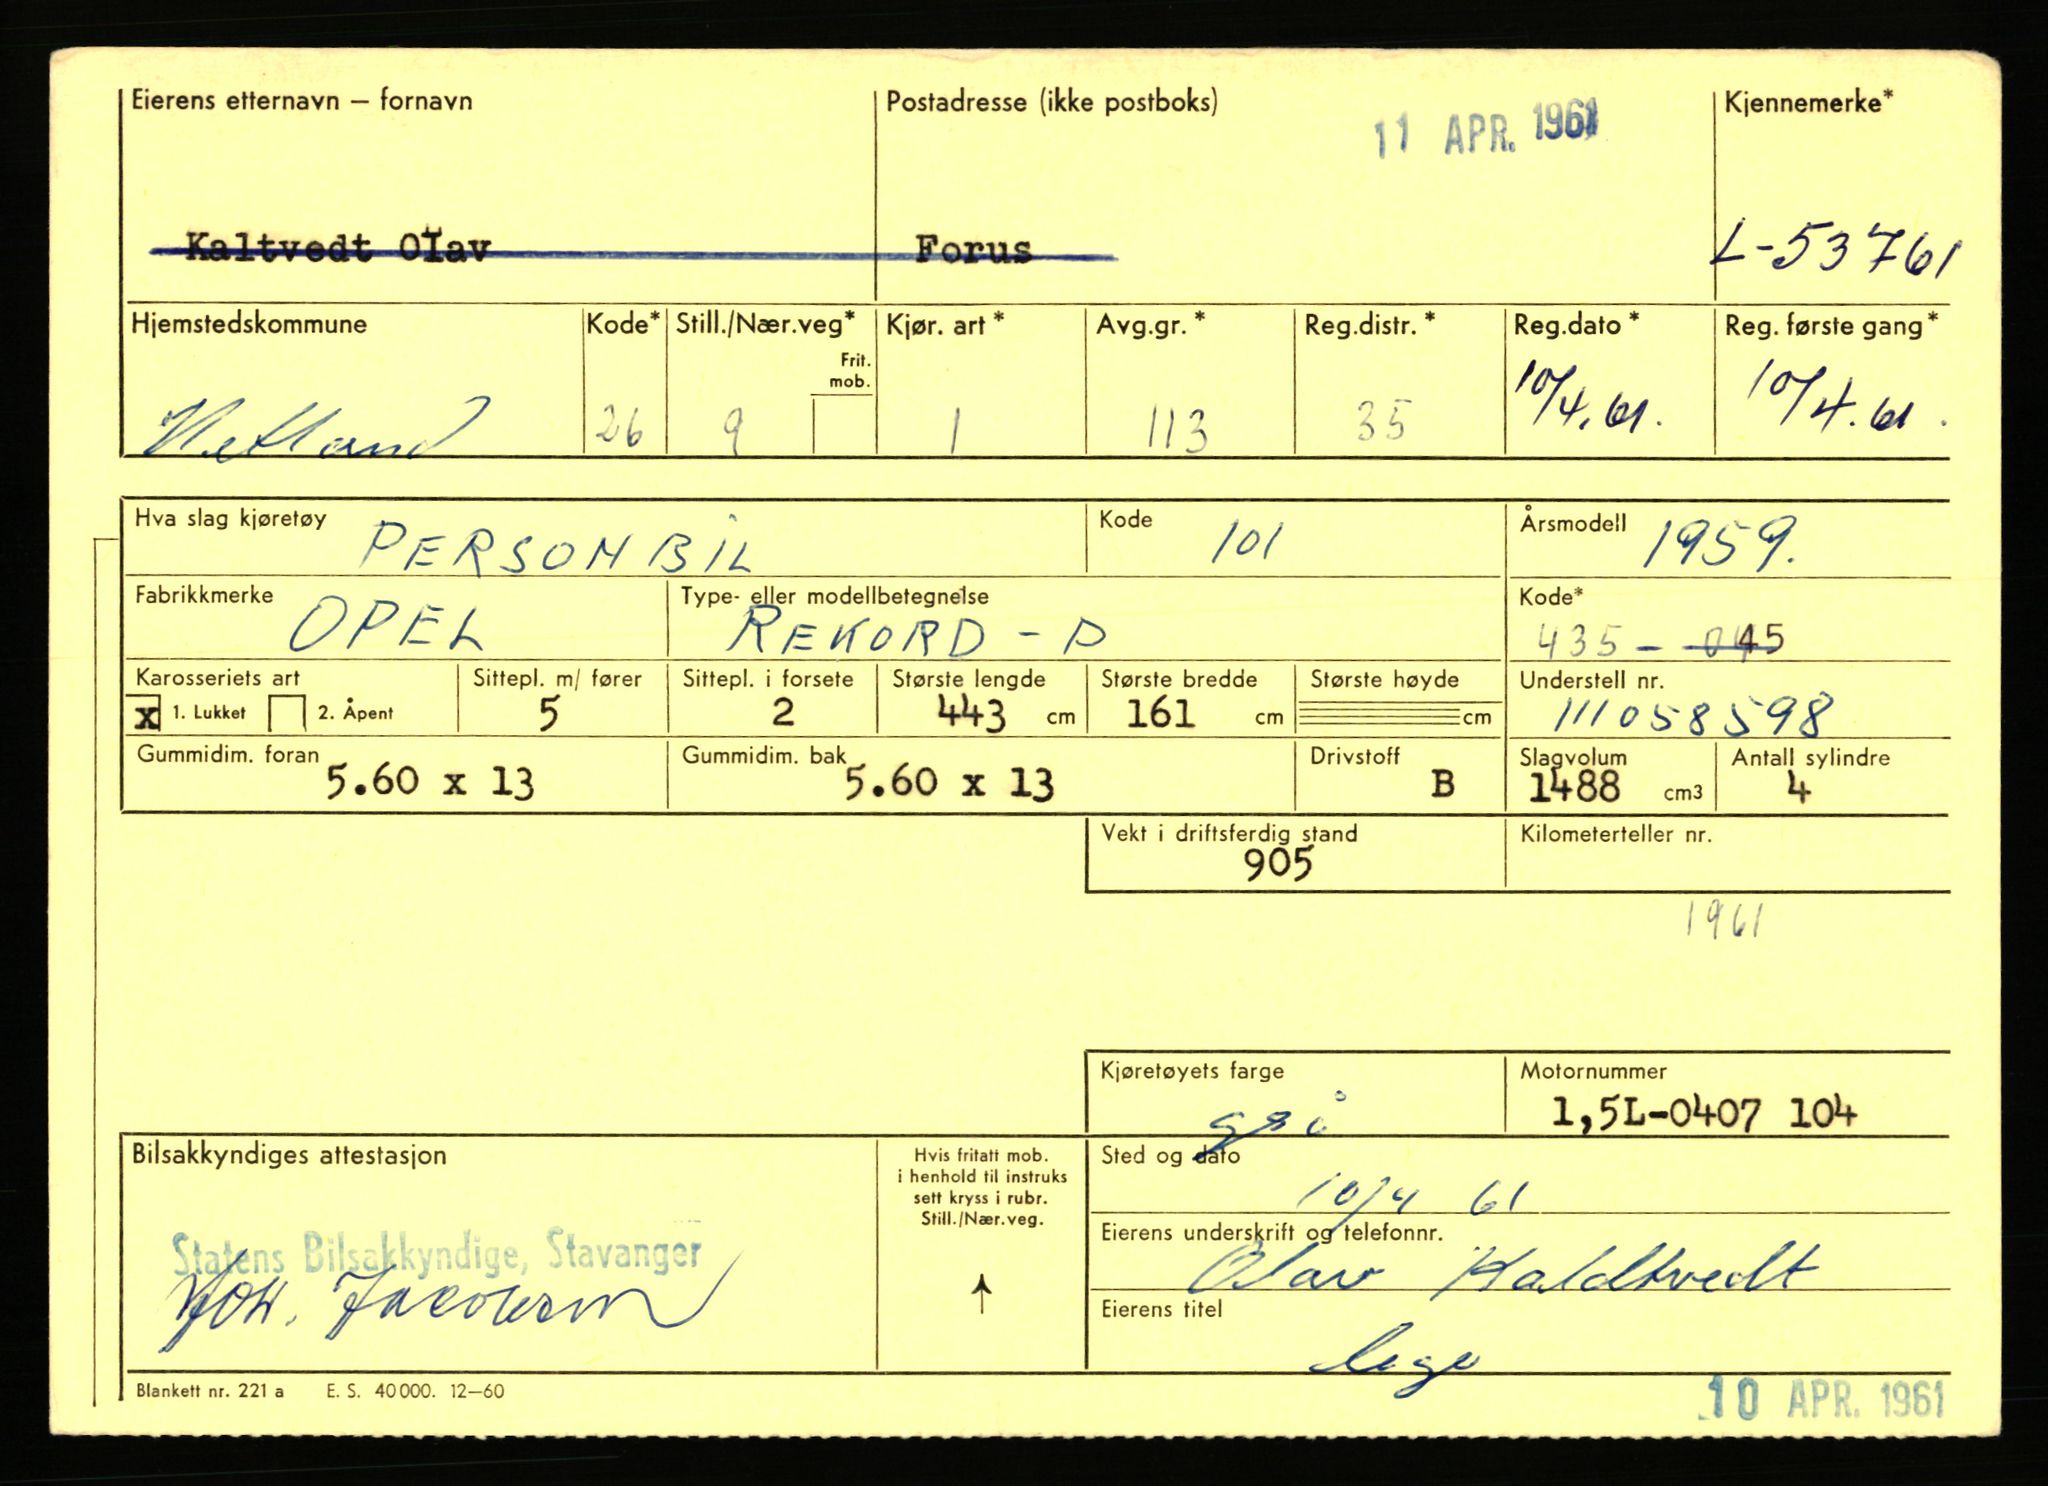 Eierens etternavn — fornavn Postadresse (ikke postboks) Kjennemerke*
11 APR. 1961
Kaltvedt Olav Forus L-53761
Hjemstedskommune Kode* Still./Nær.veg* Kjør. art * Avg.gr. * Reg.distr. * Reg.dato * Reg. første gang *
Frit.
mob.
Hetland 26 9 1 113 35 10/4.61. 10/4.61.
Hva slag kjøretøy PERSONBIL Kode 101 Årsmodell 1959.
Fabrikkmerke OPEL Type- eller modellbetegnelse REKORD - P Kode*
435 -
Karosseriets art Sittepl. m/ fører Sittepl. i forsete Største lengde Største bredde Største høyde Understell nr.
x 1. Lukket 2. Åpent 5 2 443 cm 161 cm cm 111058598
Gummidim. foran Gummidim. bak Drivstoff Slagvolum Antall sylindre
5.60 x 13 5.60 x 13 B 1488 cm3 4
Vekt i driftsferdig stand Kilometerteller nr.
905
1961
Kjøretøyets farge Motornummer
grå 1,5L-0407 104
Bilsakkyndiges attestasjon Hvis fritatt mob. Sted og dato
i henhold til instruks
sett kryss i rubr. 10/4 61
Still./Nær.veg.
Eierens underskrift og telefonnr.
Statens Bilsakkyndige, Stavanger
Olav Kaldtvedt
Joh. Jacobsen
Eierens titel
Blankett nr. 221 a E. S. 40 000. 12—60
10 APR. 1961